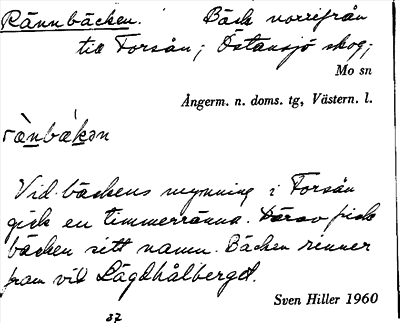 Rännbäcken. Bäck norrifrån
till Torsån; Östansjö skog;
Mo sn
Ångerm. n. doms. tg, Västern. l.
rànbak̀ən
Vid bäckens mynning i Torsån
gick en timmerränna. Därav fick
bäcken sitt namn. Bäcken rinner
fram vid Lägdhålberget.
Sven Hiller 1960
37